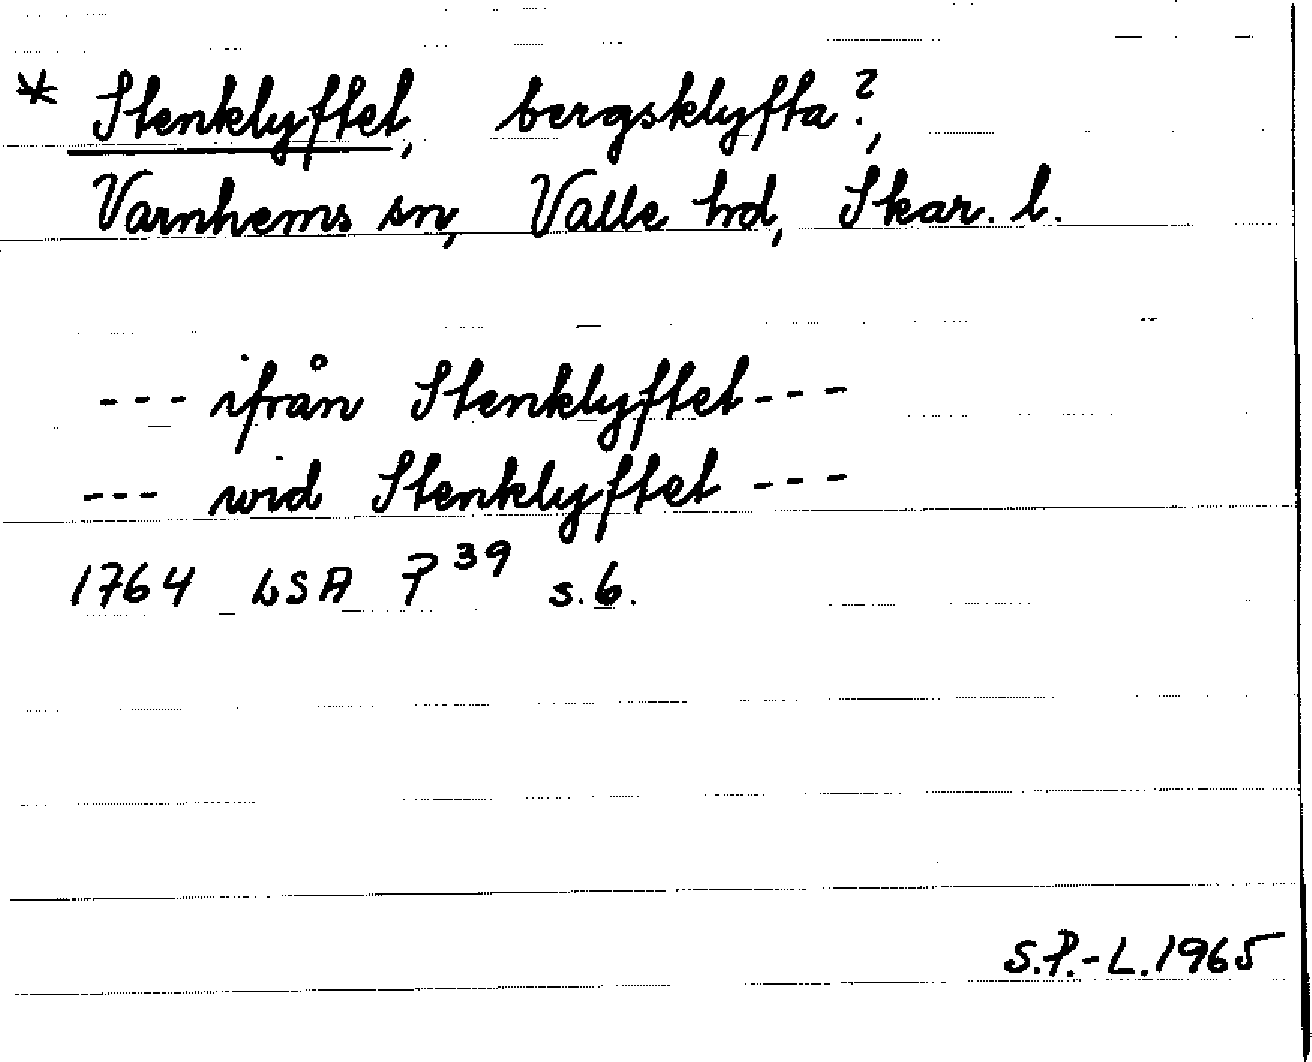 * Stenklyftet, bergsklyfta?,
Varnhems sn, Valle hd, Skar. l.
--- ifrån Stenklyftet ---
--- wid Stenklyftet ---
1764 LSA P 39 s. 6.
S.P.-L. 1965